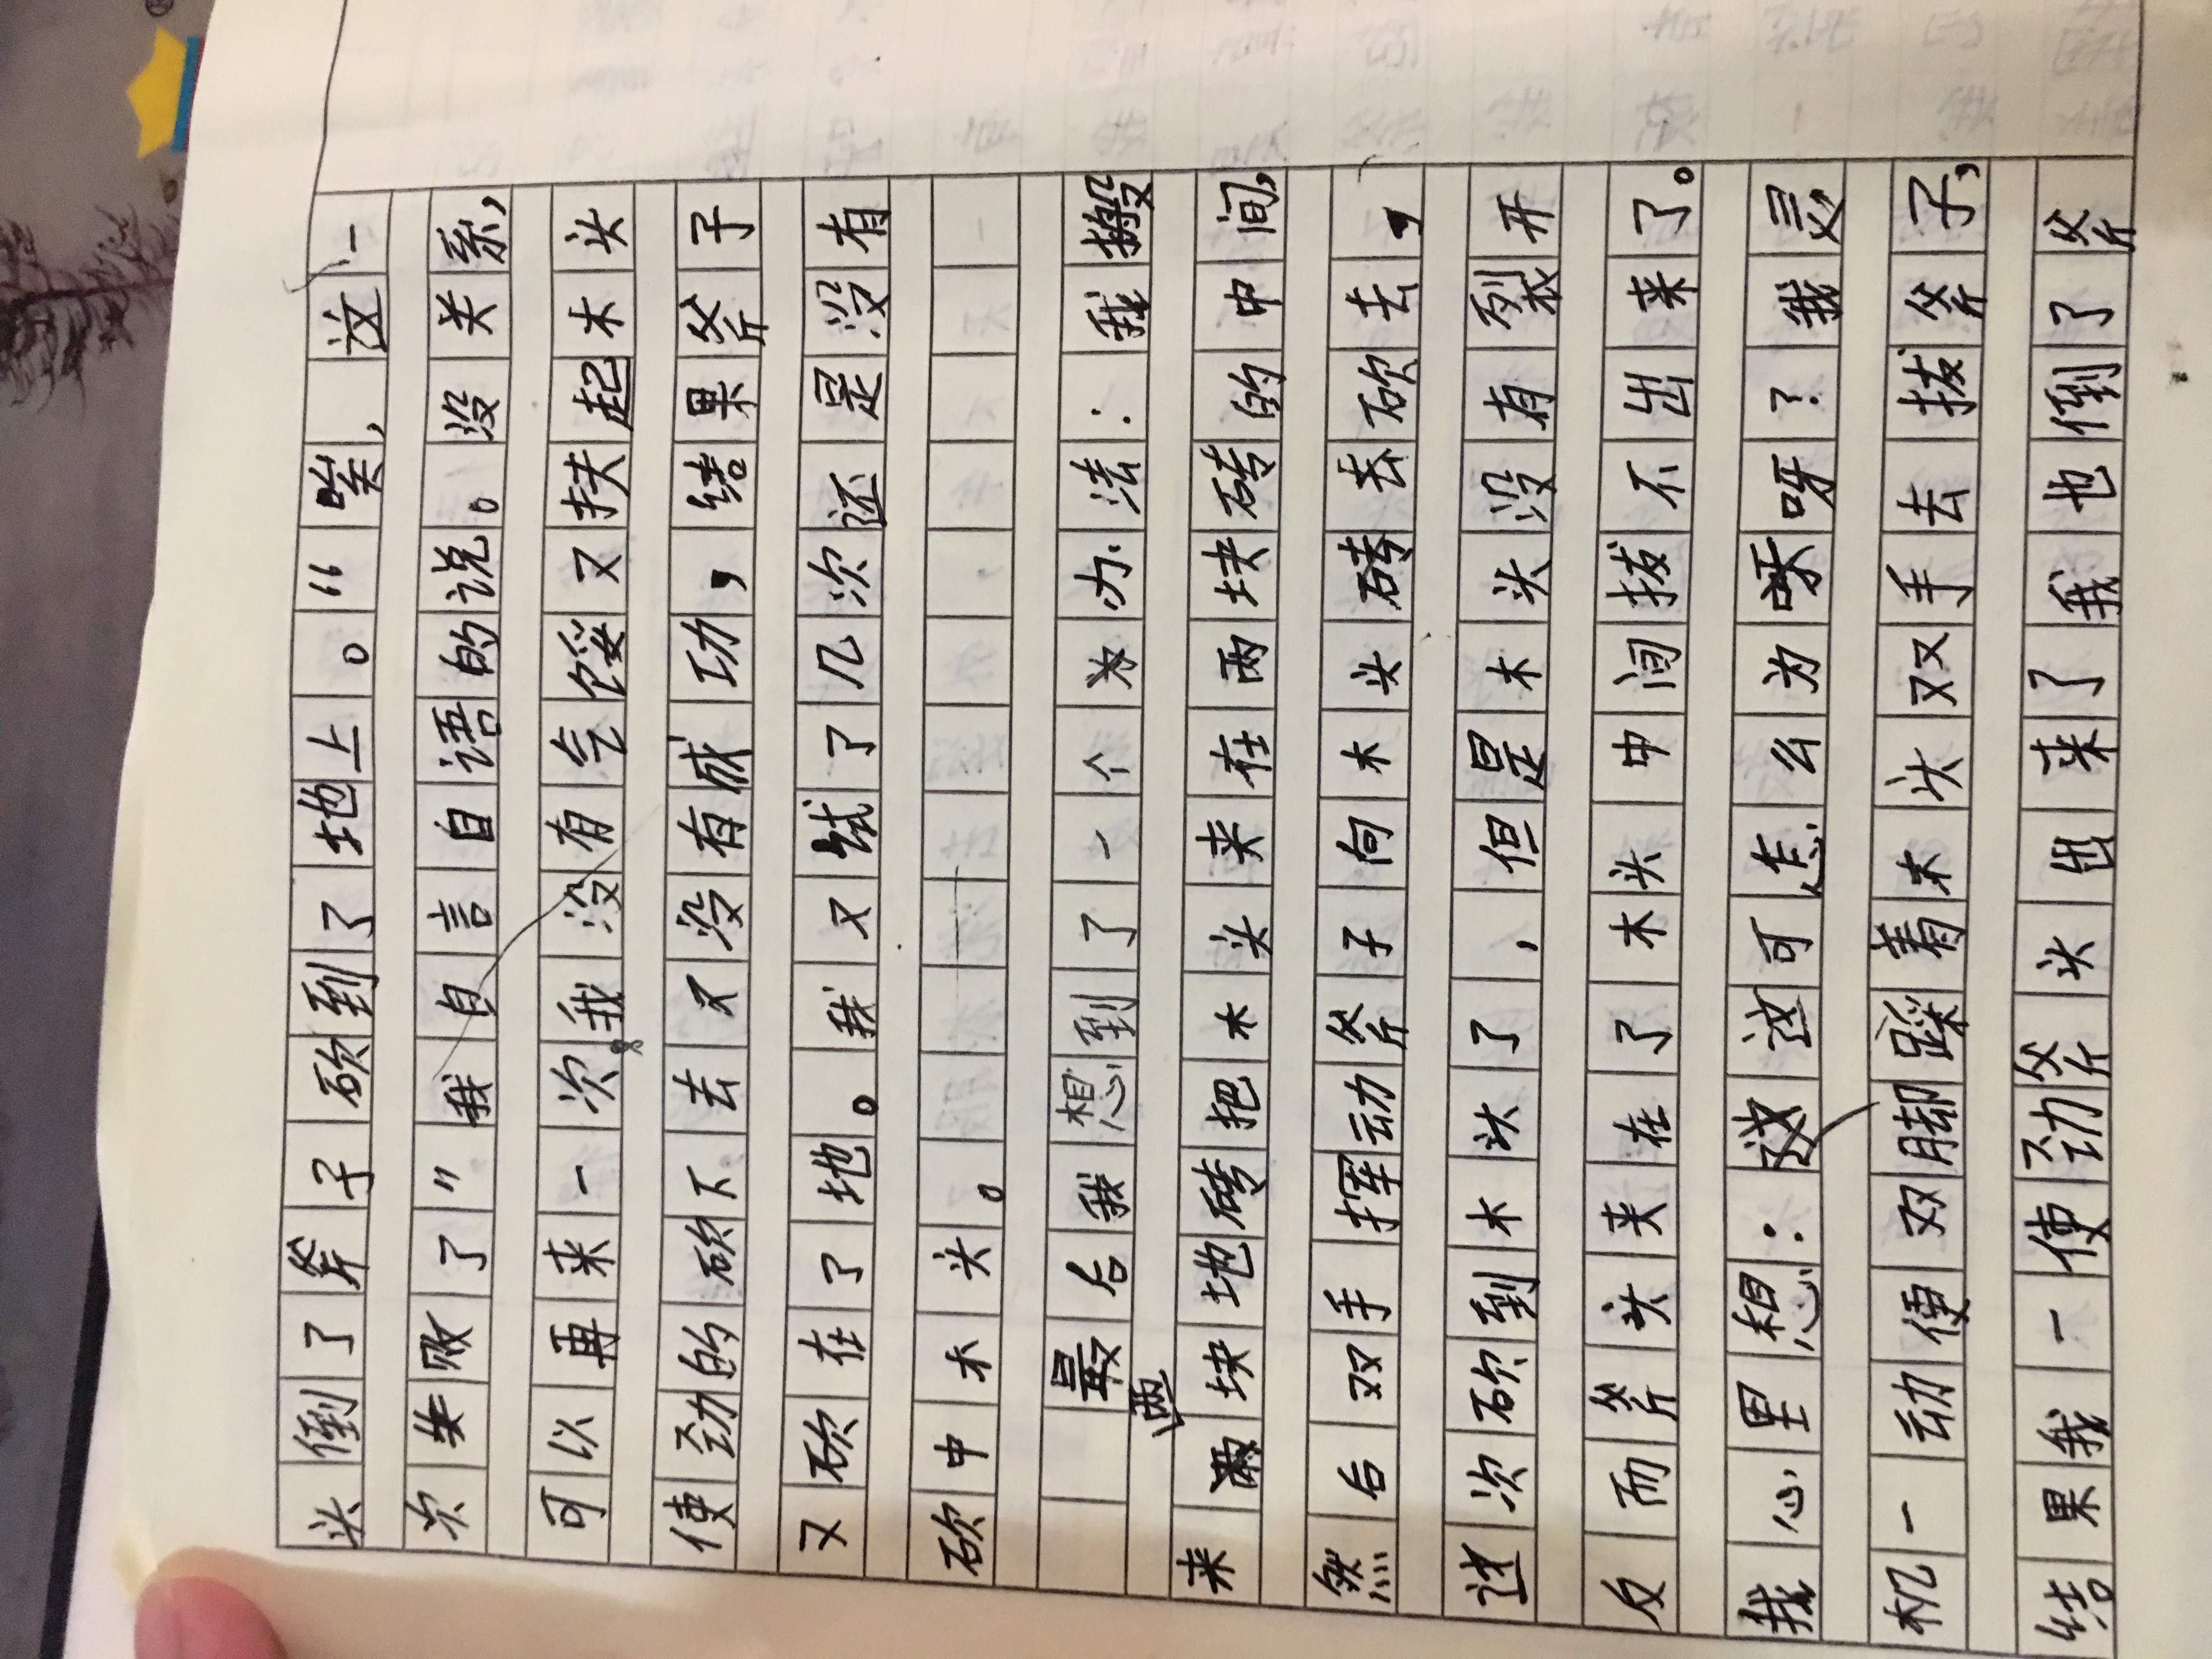 头倒了斧子砍到了地上。“唉，这一
次失败了”我自言自语的说。没关系，
可以再来一次。我没有气馁又扶起木头
使劲的砍下去又没有成功，结果斧子
又砍在了地。我又试了几次还是没有
砍中木头。
最后我想到了一个办法：我搬
来两块地砖把木头来在两块砖的中间，
然后双手挥动斧子向木头砖去砍去，
这次砍到木头了，但是木头没有裂开
反而斧头夹在了木头中间拔不出来了。
我心里想：这可怎么为呀？我灵
机一动使双脚踩着木头双手去拔斧子，
结果我一使劲斧头出来了我也倒了斧